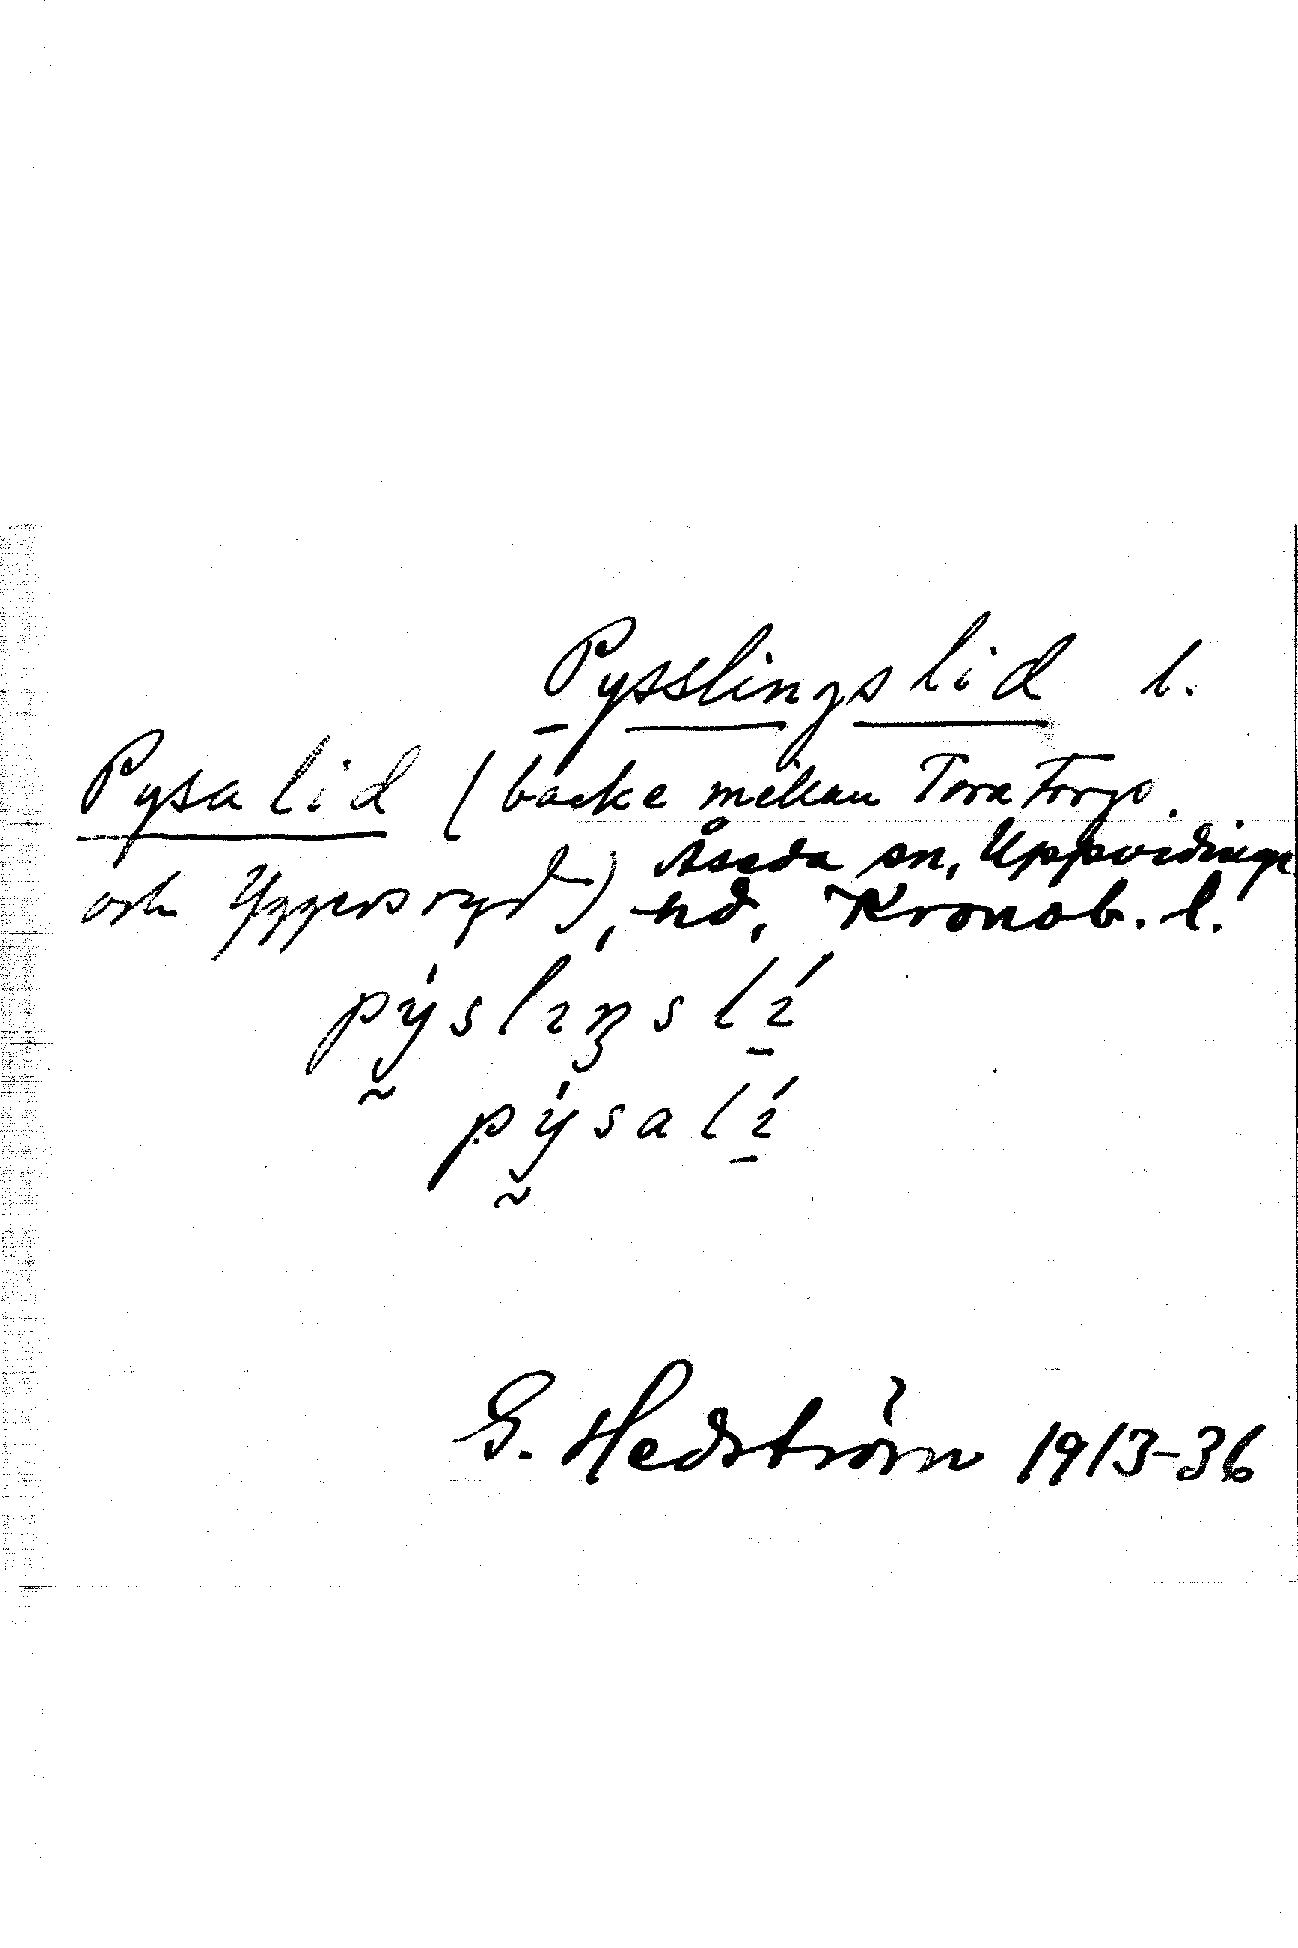 Pysslingslid l.
Pysalid (backe mellan Tora Torp
och Yggersryd), Åseda sn, Uppvidinge
hd, Kronob. l.
pýslɪŋslí
pýsalí
G. Hedström 1913-36